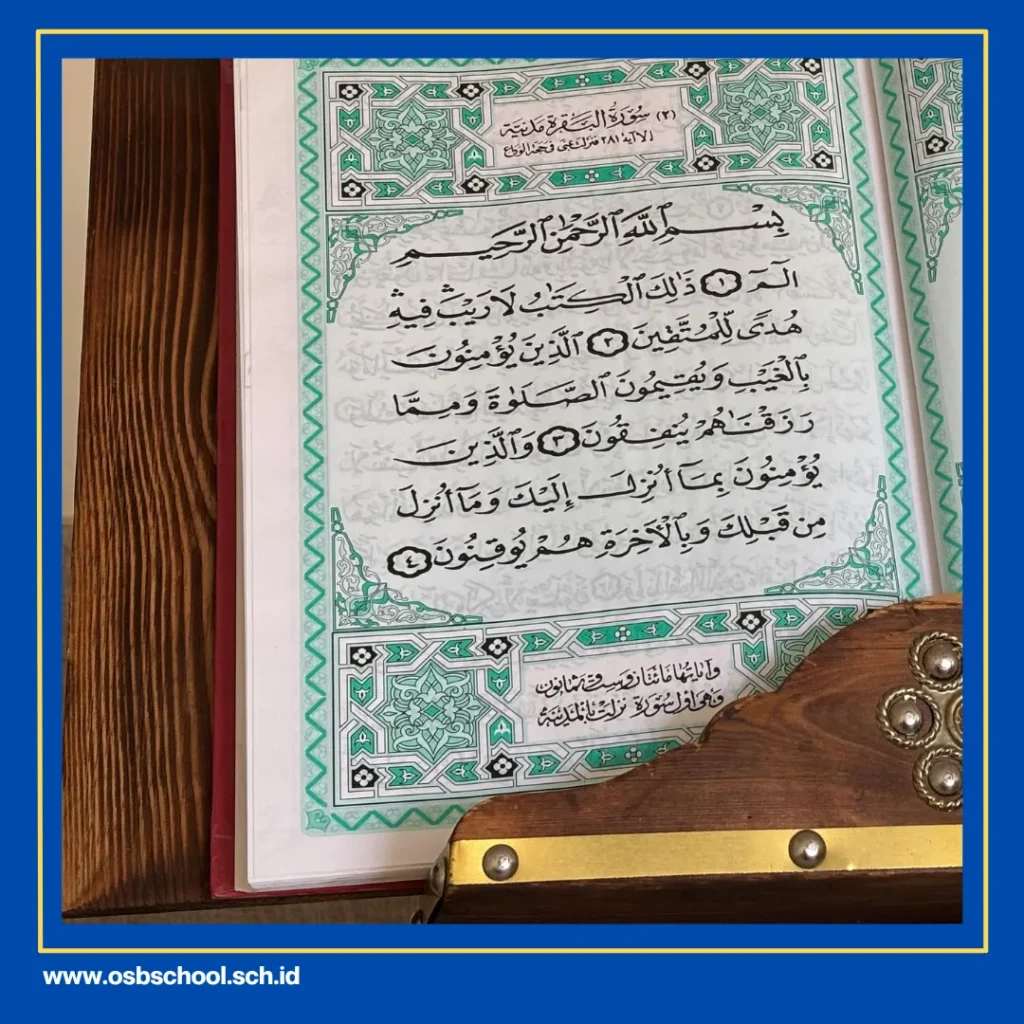 (٢) سُورَةُ الْبَقَرَةِ مَدَنِيَّة
إلا آية ٢٨١ فنزلت بمنى في حجة الوداع
بِسْمِ ٱللَّهِ ٱلرَّحْمَٰنِ ٱلرَّحِيمِ
الٓمٓ ١ ذَٰلِكَ ٱلْكِتَٰبُ لَا رَيْبَ ۛ فِيهِ ۛ
هُدًى لِّلْمُتَّقِينَ ٢ ٱلَّذِينَ يُؤْمِنُونَ
بِٱلْغَيْبِ وَيُقِيمُونَ ٱلصَّلَوٰةَ وَمِمَّا
رَزَقْنَٰهُمْ يُنفِقُونَ ٣ وَٱلَّذِينَ
يُؤْمِنُونَ بِمَآ أُنزِلَ إِلَيْكَ وَمَآ أُنزِلَ
مِن قَبْلِكَ وَبِٱلْأَخِرَةِ هُمْ يُوقِنُونَ ٤
وآياتها مائتان وست وثمانون
وهي أول سورة نزلت بالمدينة
www.osbschool.sch.id